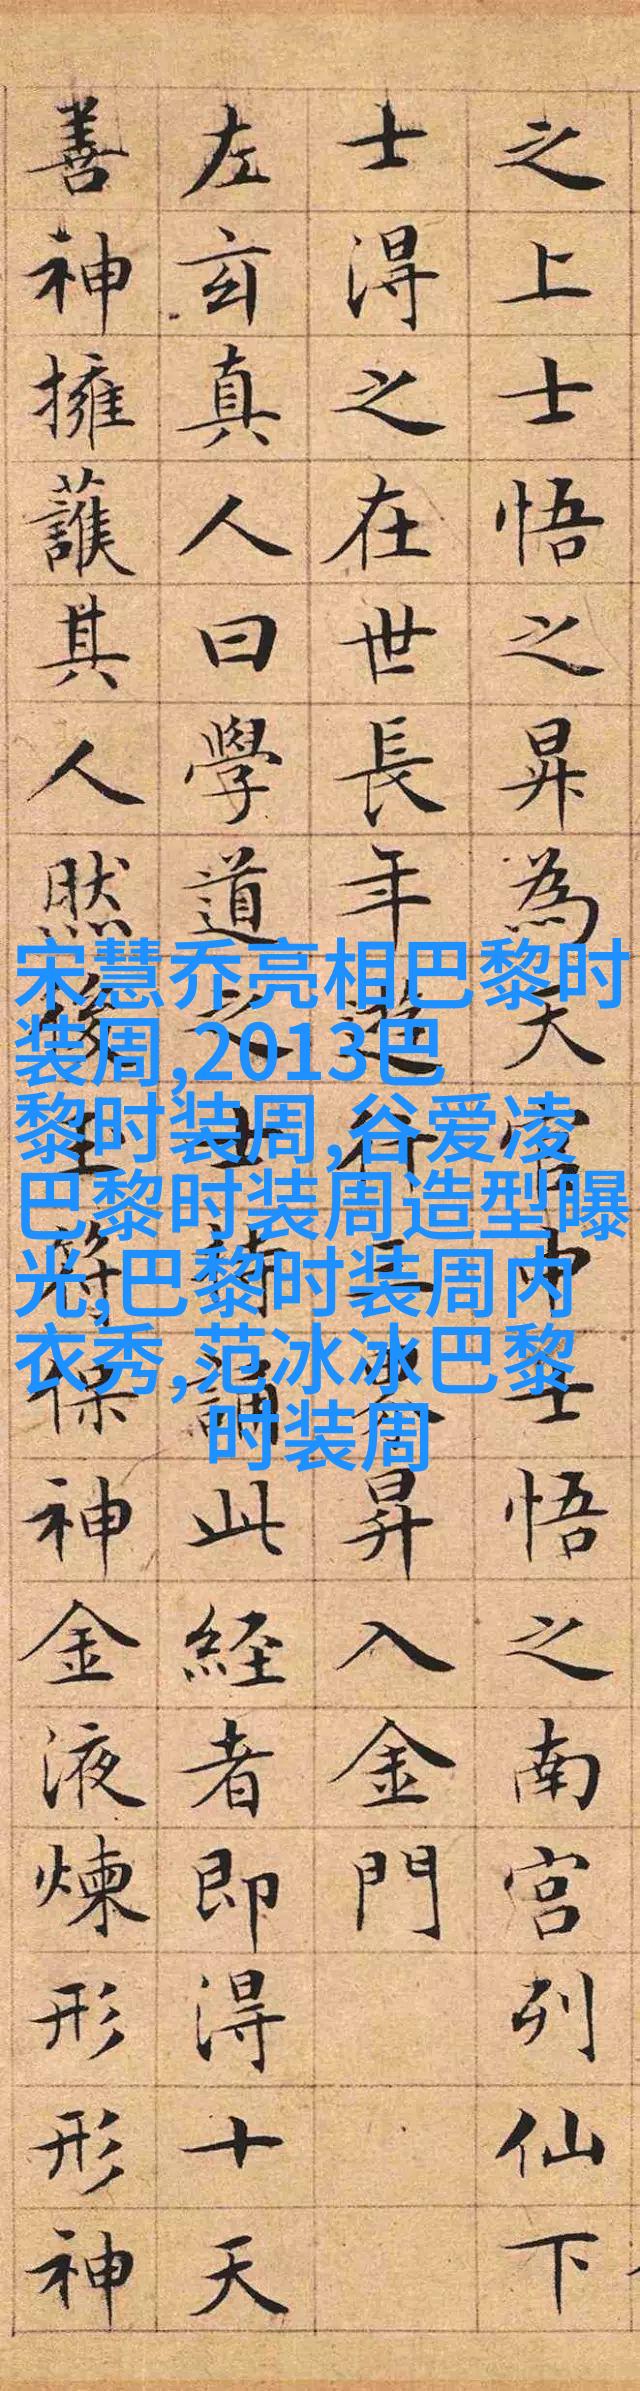 之上士悟之昇為天官中士悟之南宮列仙下
士得之在世長年遊行三界昇入金門
左玄真人曰學道之士持誦此經者即得十天
善神擁護其人然後玉符保神金液煉形形神
宋慧乔亮相巴黎时
装周,2013巴
黎时装周,谷爱凌
巴黎时装周造型曝
光,巴黎时装周内
衣秀,范冰冰巴黎
时装周